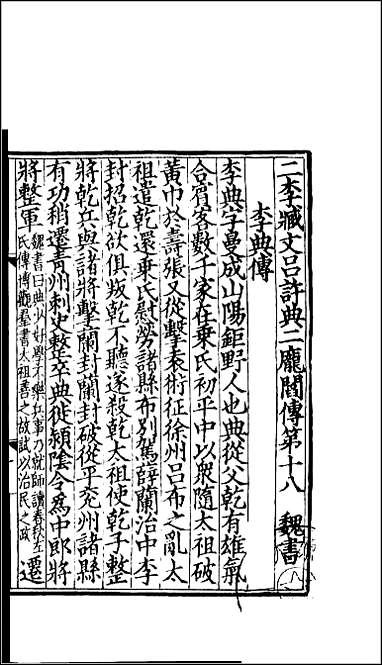 二李臧文呂許典二龐閻傳第十八　魏書
李典傳
李典字曼成山陽鉅野人也典從父乾有雄氣
合賓客數千家在乗氏初平中以衆隨太祖破
黃巾於壽張又從擊袁術征徐州呂布之亂太
祖遣乾還乗氏慰勞諸縣布別駕薛蘭治中李
封招乾欲俱叛乾不聽遂殺乾太祖使乾子整
將乾兵與諸將擊蘭封蘭封破從平兖州諸縣
有功稍遷青州刺史整卒典徙潁陰令爲中郎將
將整軍
魏書曰典少好學不樂兵事乃就師讀春秋左
氏傳博觀羣書太祖善之故試以治民之政
遷